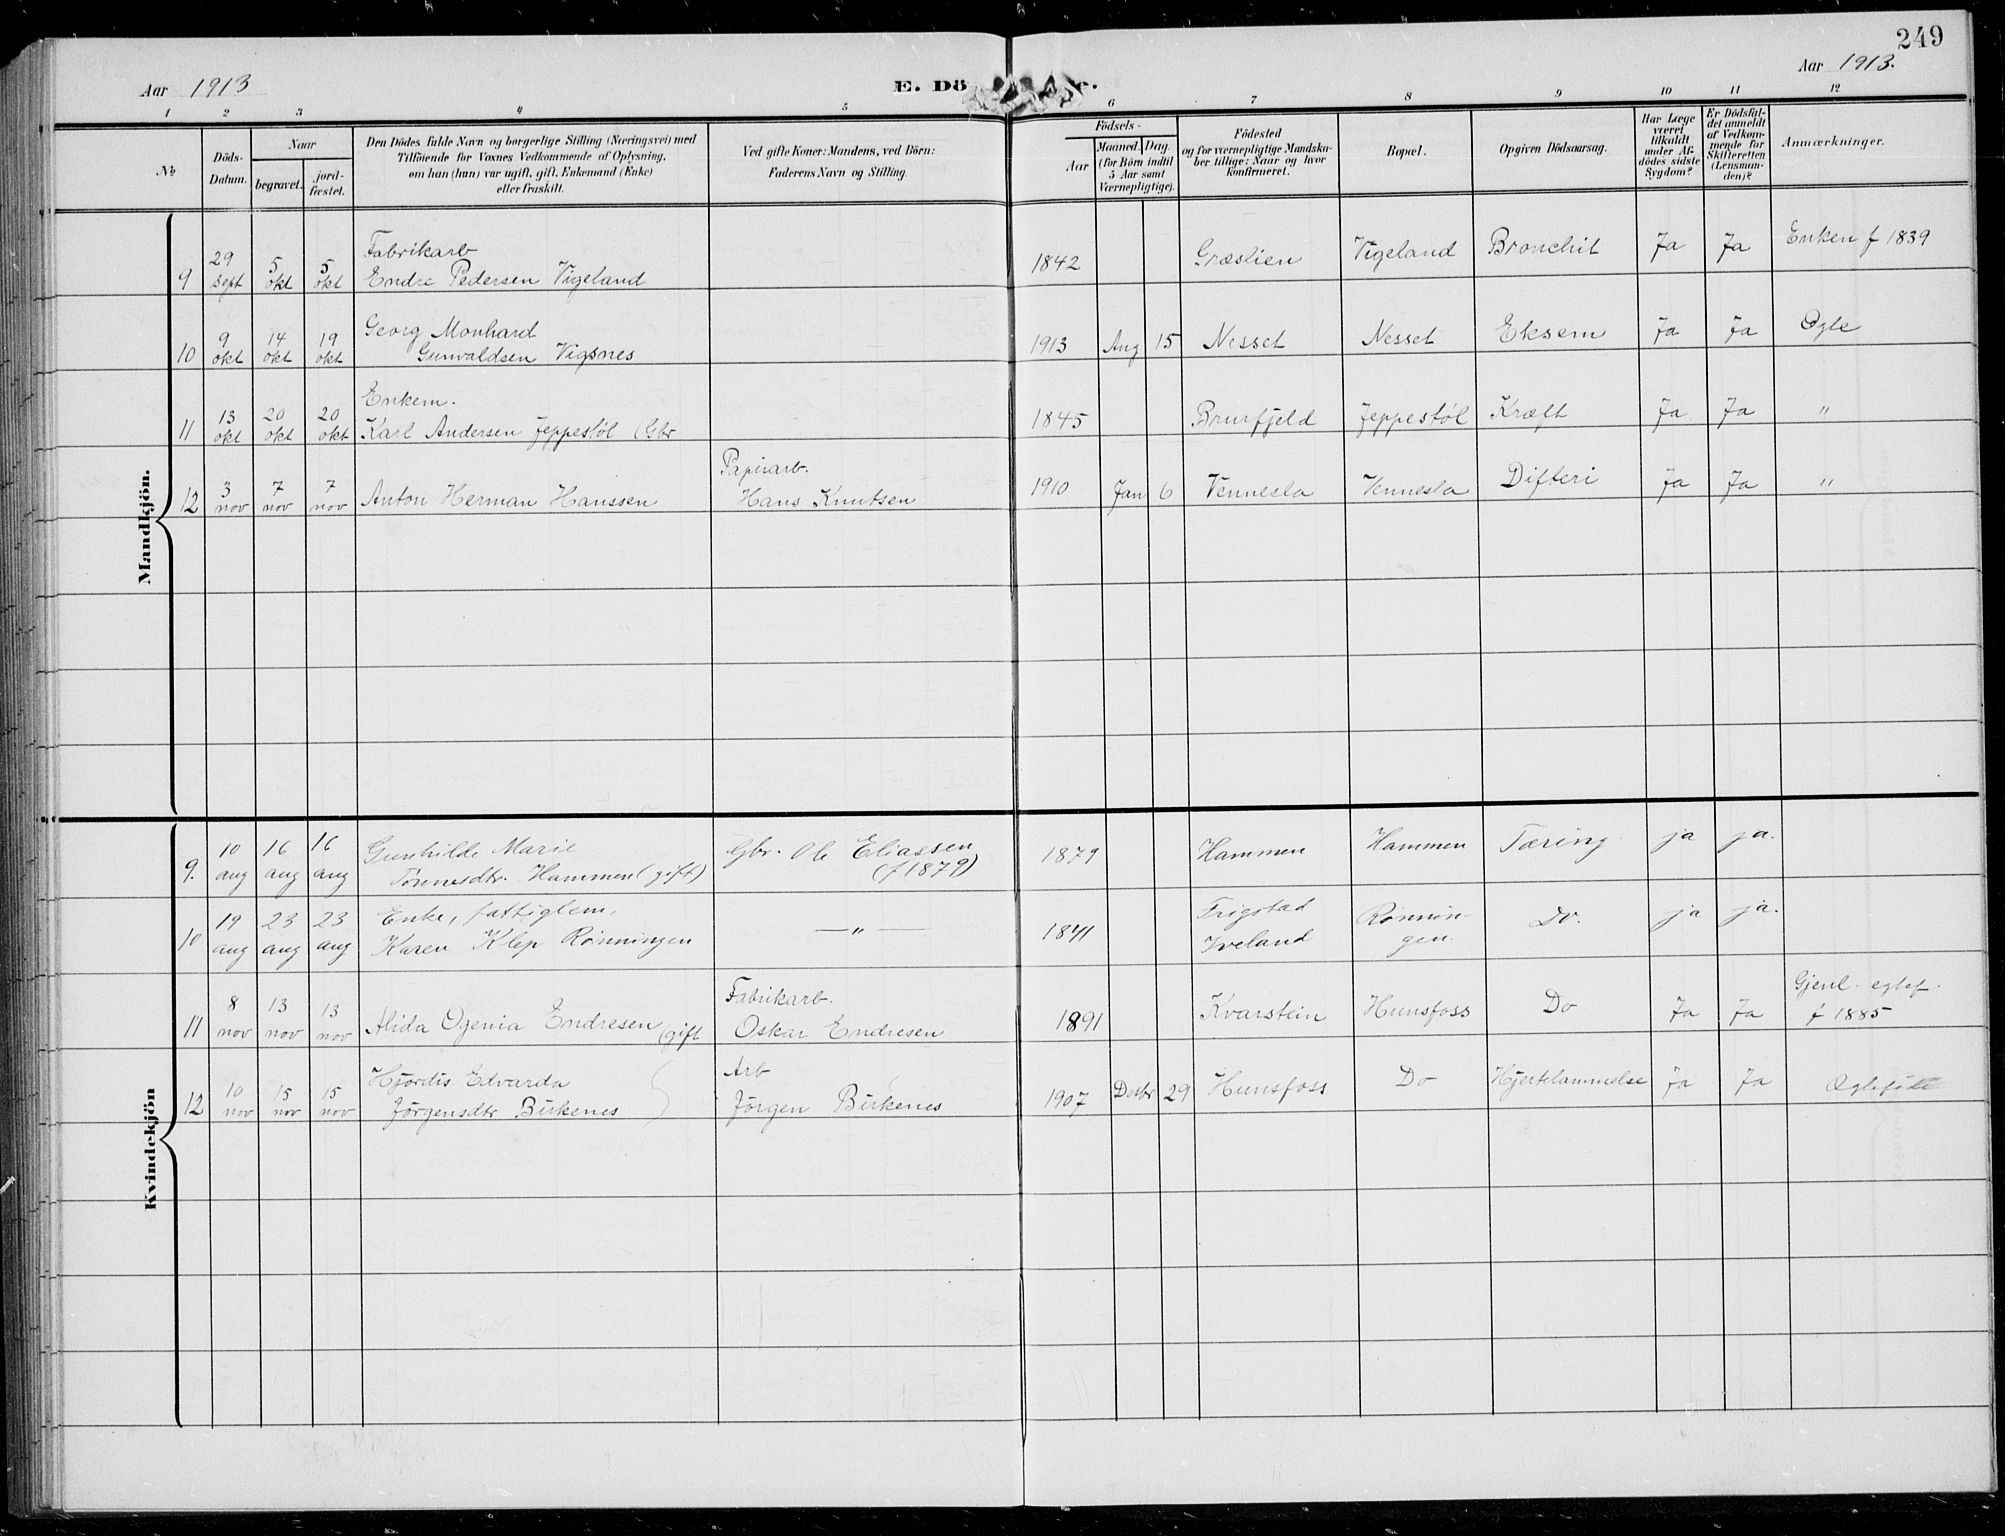 249
Aar 1913
E. Dö
Aar 1913.
1 2 3 4 5 6 7 8 9 10 11 12
№
Döds-Datum.
Naar
begravet.
jord-fæstet.
Den Dödes fulde Navn og borgerlige Stilling (Næringsvei) med
Tilföiende for Voxnes Vedkommende af Oplysning,
om han (hun) var ugift, gift, Enkemand (Enke)
eller fraskilt.
Ved gifte Koner: Mandens, ved Börn:
Faderens Navn og Stilling.
Födsels-
Aar
Maaned. Dag.
(for Börn indtil
5 Aar samt
Værnepligtige).
Födested
og for værnepligtige Mandska-
ber tillige: Naar og hvor
konfirmeret.
Bopæl.
Opgiven Dödsaarsag.
Har Læge
været
tilkaldt
under Af-
dödes sidste
Sygdom?
Er Dödsfal-
det anmeldt
af Vedkom-
mende for
Skifteretten
(Lensman-
den)?
Anmærkninger.
Mandkjön.
9 29 sept 5 okt 5 okt Fabrikarb
Endre Pedersen Vigeland 1842 Græslien Vigeland Bronchit Ja Ja Enken f 1839
10 9 okt 14 okt 19 okt Georg Monhard
Gunvaldsen Vigsnes 1913 Aug 15 Nesset Nesset Eksem Ja Ja Egte
11 13 okt 20 okt 20 okt Enkem.
Karl Andersen Jeppestøl (Gbr 1845 Brurfjeld Jeppestøl Kræft Ja Ja "
12 3 nov 7 nov 7 nov Anton Herman Hanssen Papirarb.
Hans Knutsen 1910 Jan 6 Vennesla Vennesla Difteri Ja Ja "
Kvindekjön
9. 10 aug 16 aug 16 aug Gunhilde Marie
Tønnesdtr. Hammen (gift) Gbr. Ole Eliassen
(f 1879) 1879 Hammen Hammen Tæring ja ja.
10 19 aug 23 aug 23 aug Enke, fattiglem,
Karen Klep Rønningen — " — 1841 Frigstad
Iveland Rønnin-
gen. Do. ja ja.
11 8 nov 13 nov 13 nov Alida Ogenia Endresen (gift Fabrikarb.
Oskar Endresen 1891 Kvarstein Hunsfoss Do Ja Ja Gjenl. egtef.
f 1885
12 10 nov 15 nov 15 nov Hjørdis Edvarda
Jørgensdtr Birkenes Arb
Jørgen Birkenes 1907 Decbr 29 Hunsfoss Do Hjertelammelse Ja Ja Egtefødt